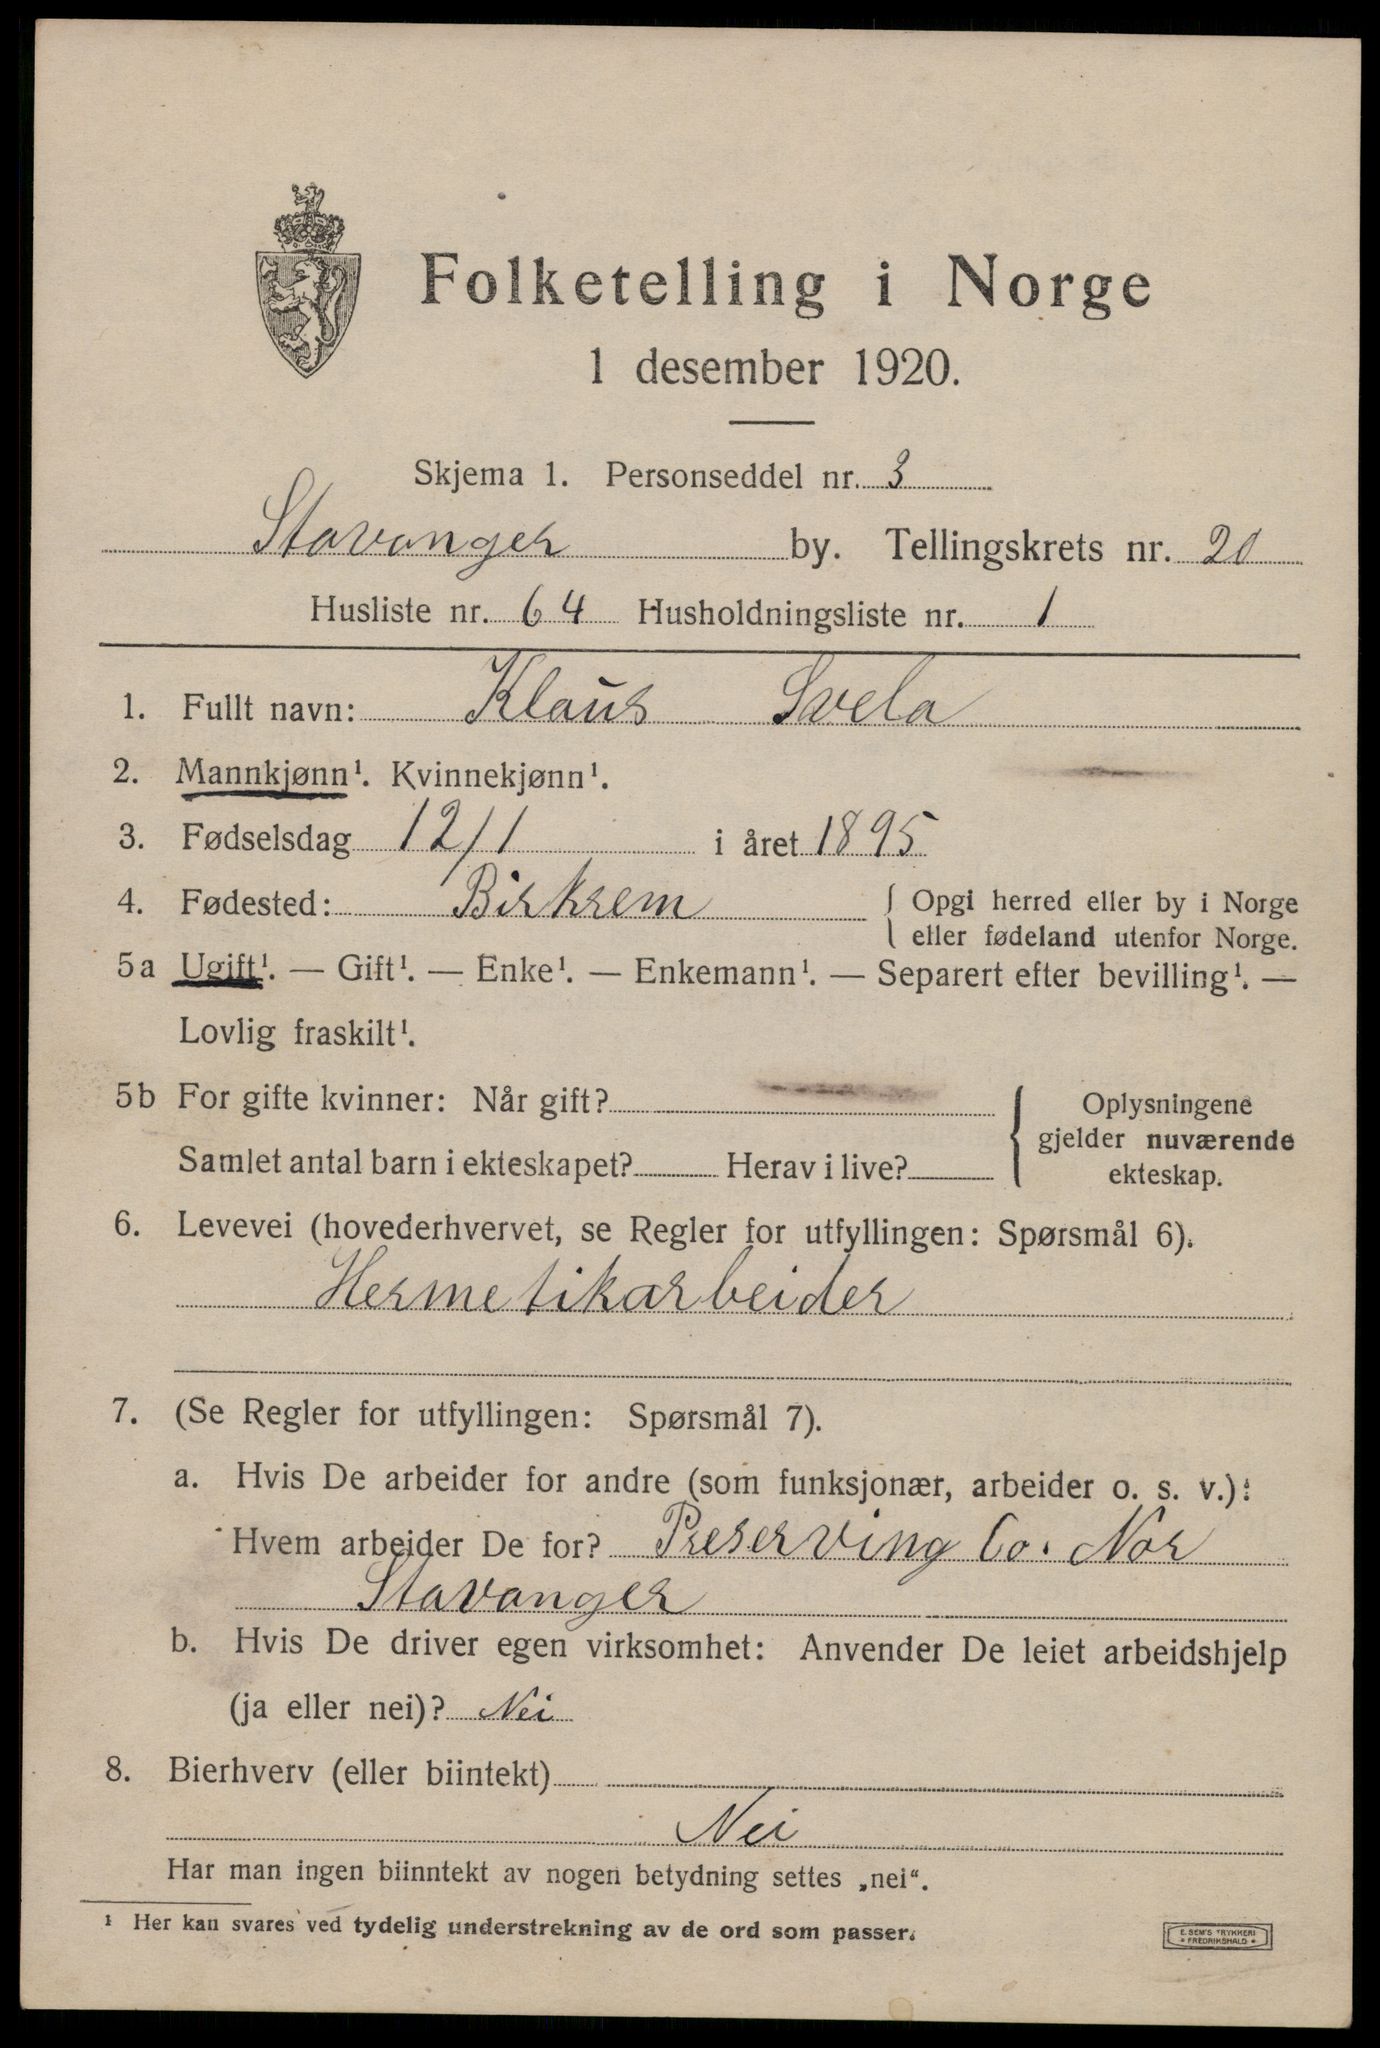 Folketelling i Norge
1 desember 1920.
Skjema 1. Personseddel nr. 3
Stavanger by. Tellingskrets nr. 20
Husliste nr. 64 Husholdningsliste nr. 1
1. Fullt navn: Klaus Svela
2. Mannkjønn¹. Kvinnekjønn¹.
3. Fødselsdag 12/1 i året 1895
4. Fødested: Birkrem { Opgi herred eller by i Norge
eller fødeland utenfor Norge.
5a Ugift¹. — Gift¹. — Enke¹. — Enkemann¹. — Separert efter bevilling¹. —
Lovlig fraskilt¹.
5b For gifte kvinner: Når gift?
Samlet antal barn i ekteskapet? Herav i live?
{ Oplysningene
gjelder nuværende
ekteskap.
6. Levevei (hovederhvervet, se Regler for utfyllingen: Spørsmål 6).
Hermetikarbeider
7. (Se Regler for utfyllingen: Spørsmål 7).
a. Hvis De arbeider for andre (som funksjonær, arbeider o. s. v.):
Hvem arbeider De for? Preserving Co. Nor
Stavanger
b. Hvis De driver egen virksomhet: Anvender De leiet arbeidshjelp
(ja eller nei)? Nei
8. Bierhverv (eller biintekt)
Nei
Har man ingen biinntekt av nogen betydning settes „nei“.
¹ Her kan svares ved tydelig understrekning av de ord som passer.
E. SEM'S TRYKKERI
* FREDRIKSHALD *